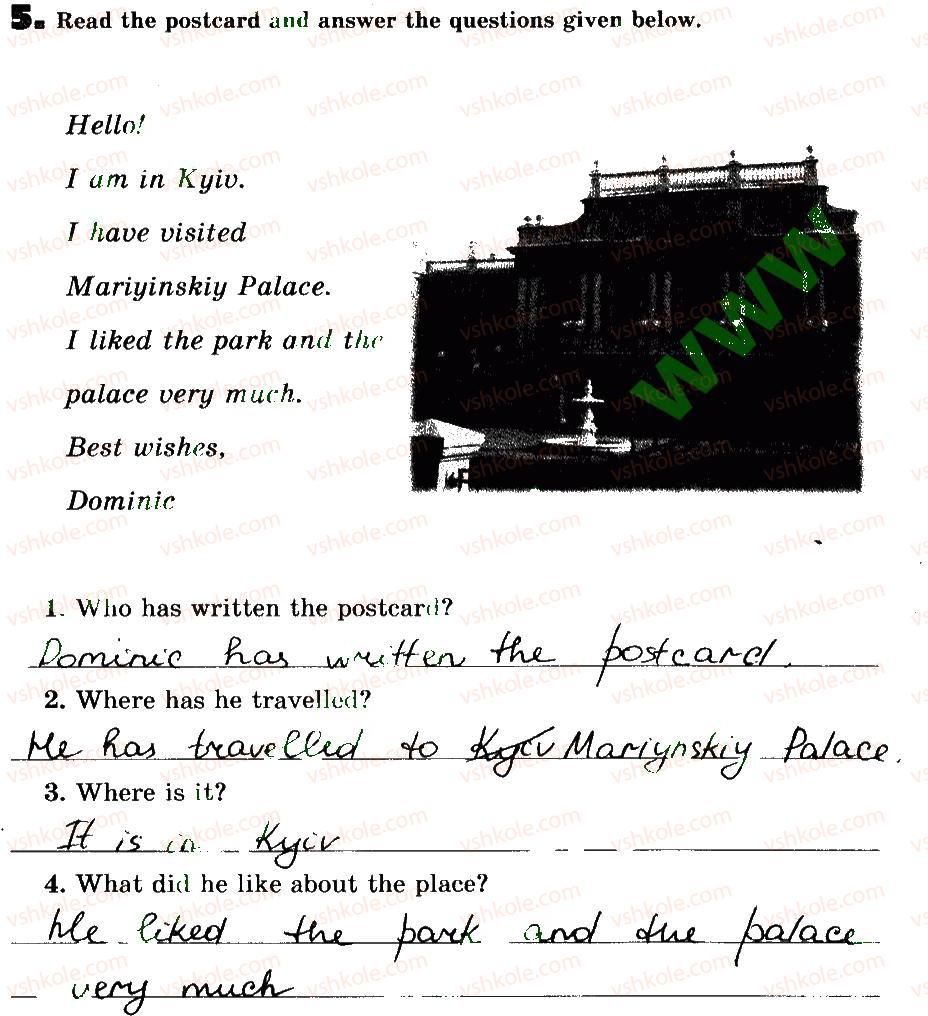 5. Read the postcard and answer the questions given below.
Hello!
I am in Kyiv.
I have visited
Mariyinskiy Palace.
I liked the park and the
palace very much.
Best wishes,
Dominic
www
1. Who has written the postcard?
Dominic has written the postcard.
2. Where has he travelled?
He has travelled to Kyiv Mariynskiy Palace.
3. Where is it?
It is in Kyiv
4. What did he like about the place?
He liked the park and the palace
very much
vshkole.com